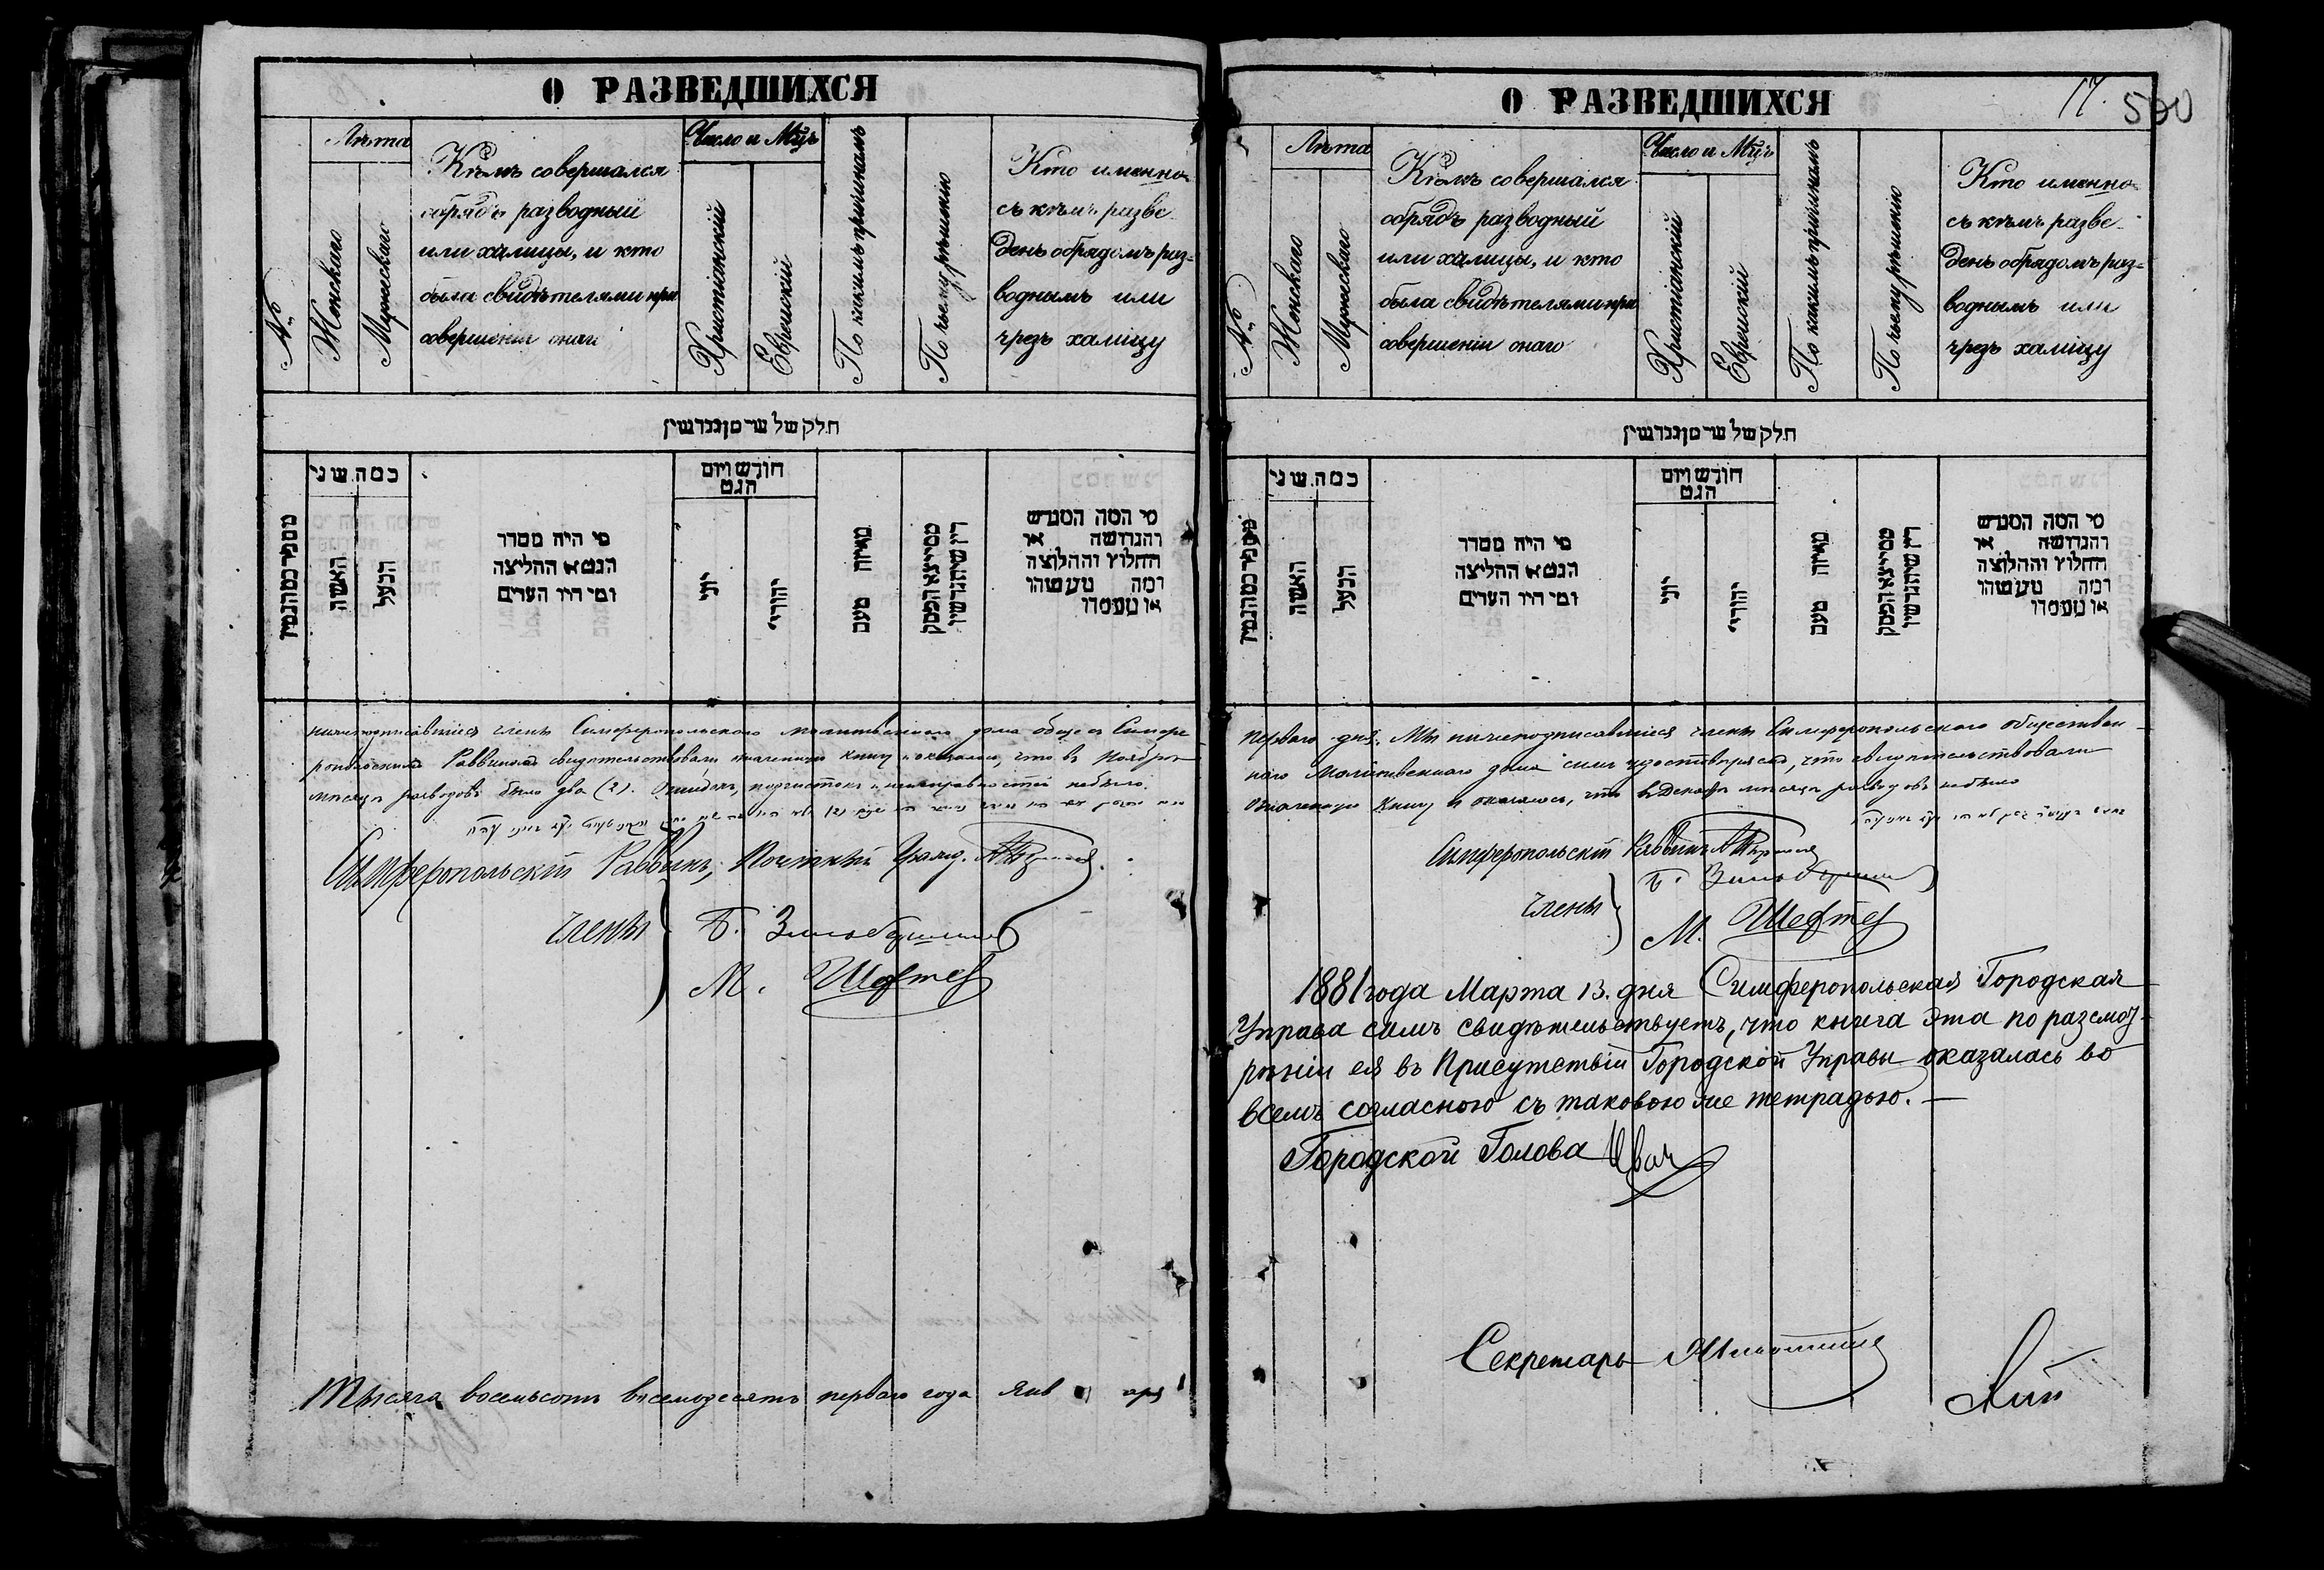 О РАЗВЕДШИХСЯ
№
Лѣта
Женскаго
Мужескаго
Кѣмъ совершался
обрядъ разводный
или халицы, и кто
была свидѣтелями при
совершеніи онаго
Число и Мѣцъ
Христіанскій
Еврейскій
По какимъ причинамъ
По чьему рѣшенію
Кто именно
съ кѣмъ разве-
денъ обрядомъ раз-
воднымъ или
чрезъ халицу
חלק של
כמה שני
האשה
הבעל
מי היה מסדר
הגט או החליצה
ומי היו העדים
חודש ויום
הגט
יוני
יהודי
מאיזה טעם
מי המה המגרש
והגרושה או
החלוץ והחלוצה
ומה
או
нижеподписавшіеся члены Симферопольскаго молитвеннаго дома обще съ Симфе-
ропольскимъ Раввиномъ свидѣтельствовали означенную книгу и оказалось, что въ Ноябрѣ
мѣсяцѣ разводовъ было два (2). Ошибокъ, подчистокъ и неисправностей небыло.
Симферопольскій Раввинъ, Почетный Гражд.
Члены
Б. Зильберман
М. Шефтел
Тысяча восемьсотъ восемьдесятъ перваго года Января
О РАЗВЕДШИХСЯ
17.
500
№
Лѣта
Женскаго
Мужескаго
Кѣмъ совершался
обрядъ разводный
или халицы, и кто
была свидѣтелями при
совершеніи онаго
Число и Мѣцъ
Христіанскій
Еврейскій
По какимъ причинамъ
По чьему рѣшенію
Кто именно
съ кѣмъ разве-
денъ обрядомъ раз-
воднымъ или
чрезъ халицу
חלק של
כמה שני
האשה
הבעל
מי היה מסדר
הגט או החליצה
ומי היו העדים
חודש ויום
הגט
יוני
יהודי
מאיזה טעם
מי המה המגרש
והגרושה או
החלוץ והחלוצה
ומה
או
перваго дня. Мы нижеподписавшіеся члены Симферопольскаго обществен-
наго Молитвеннаго дома симъ удостовѣряемъ, что свидѣтельствовали
означенную книгу и оказалось, что въ Декабрѣ мѣсяцѣ разводовъ небыло
Симферопольскій Раввинъ
Члены
Б. Зильберман
М. Шефтел
1881 года Марта 13. дня Симферопольская Городская
Управа симъ свидѣтельствуетъ, что книга эта по разсмот-
рѣніи ея въ Присутствіи Городской Управы оказалась во
всемъ согласною съ таковою же тетрадью. —
Городской Голова Иван
Секретарь